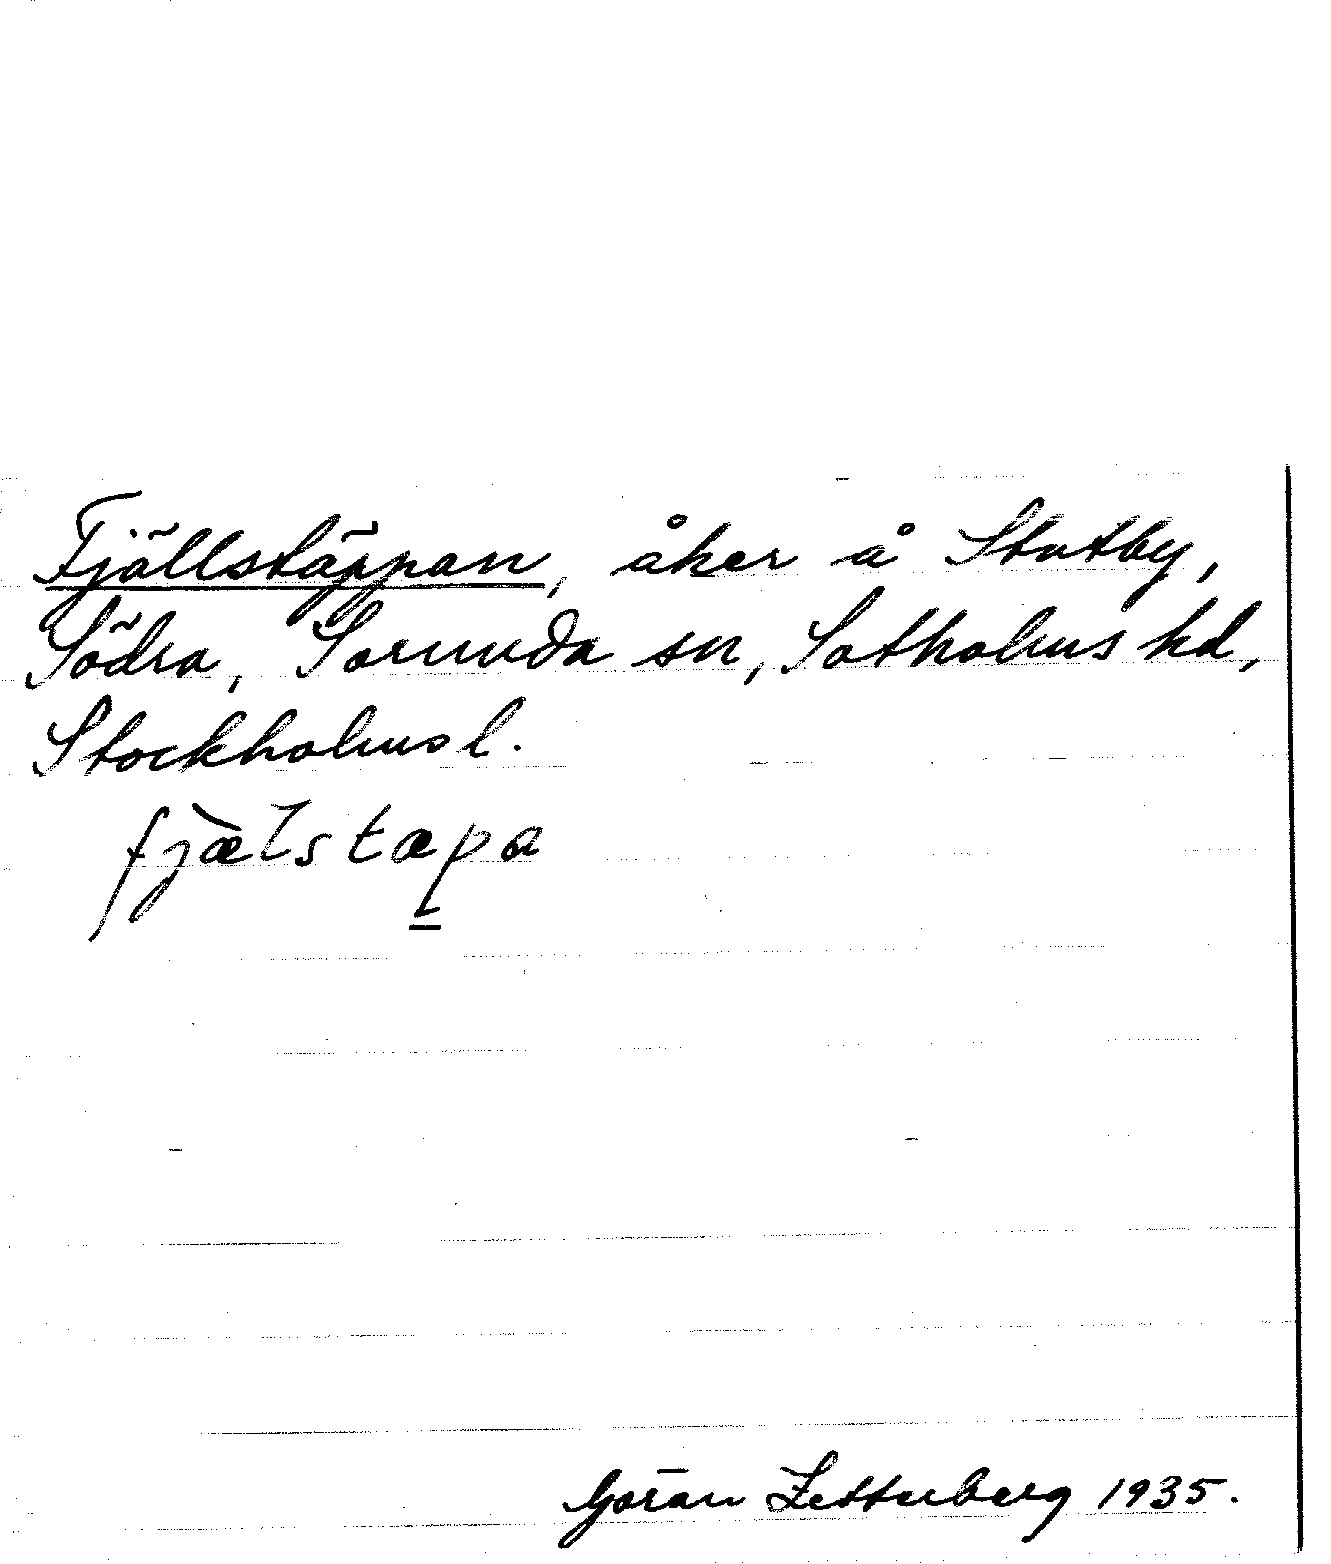 Fjällstäppan, åker å Stutby,
Södra, Sorunda sn, Sotholms hd,
Stockholms l.
fjælstæpa
Göran Zetterberg 1935.